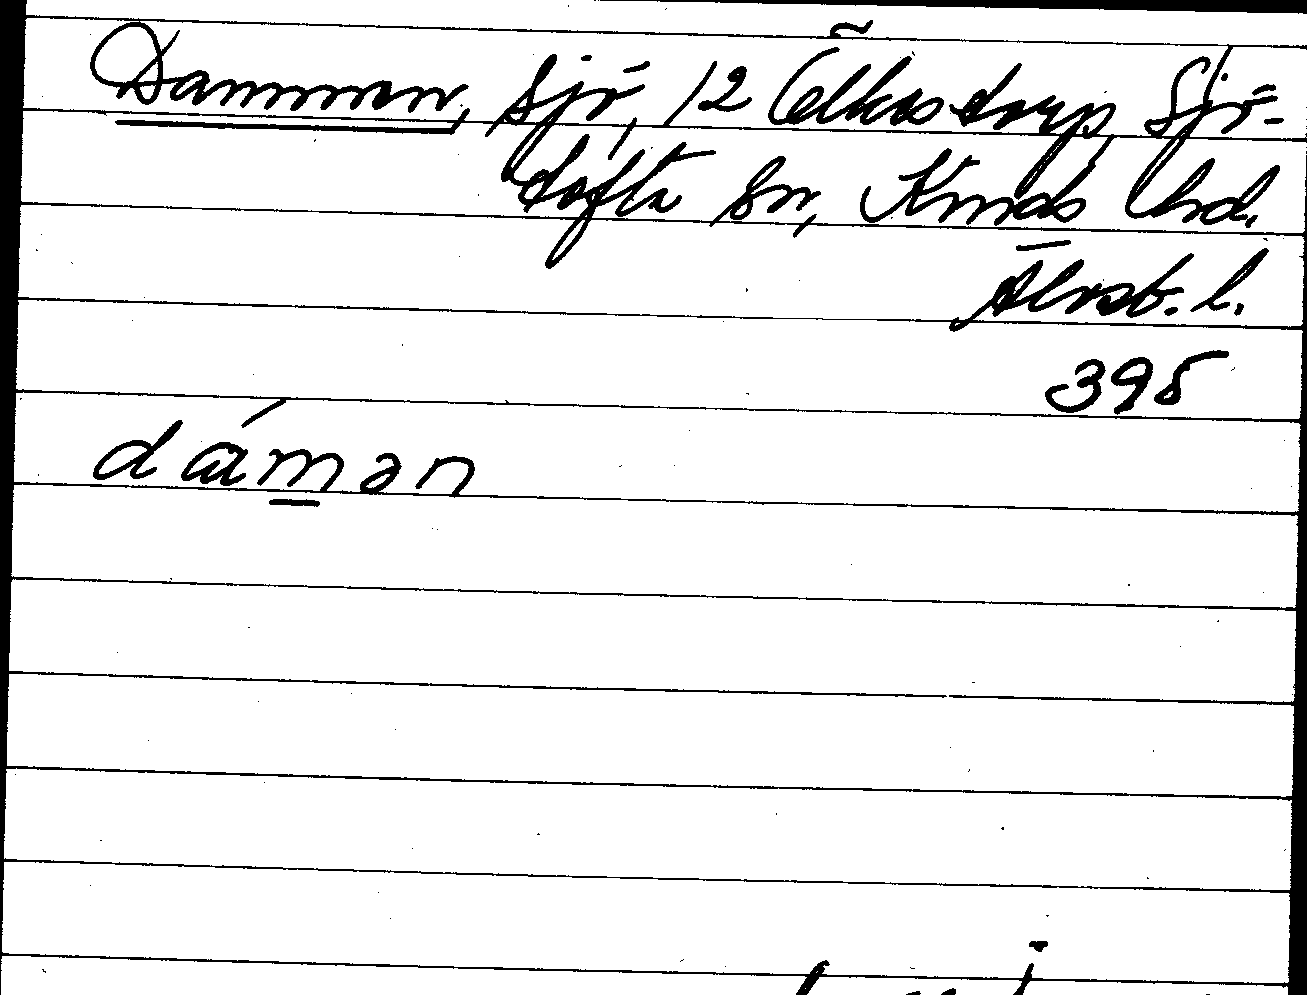 Dammen, sjö, 12 Ölkastorp, Sjö-
tofta sn, Kinds hd.
Älvsb. l.
395
dámən